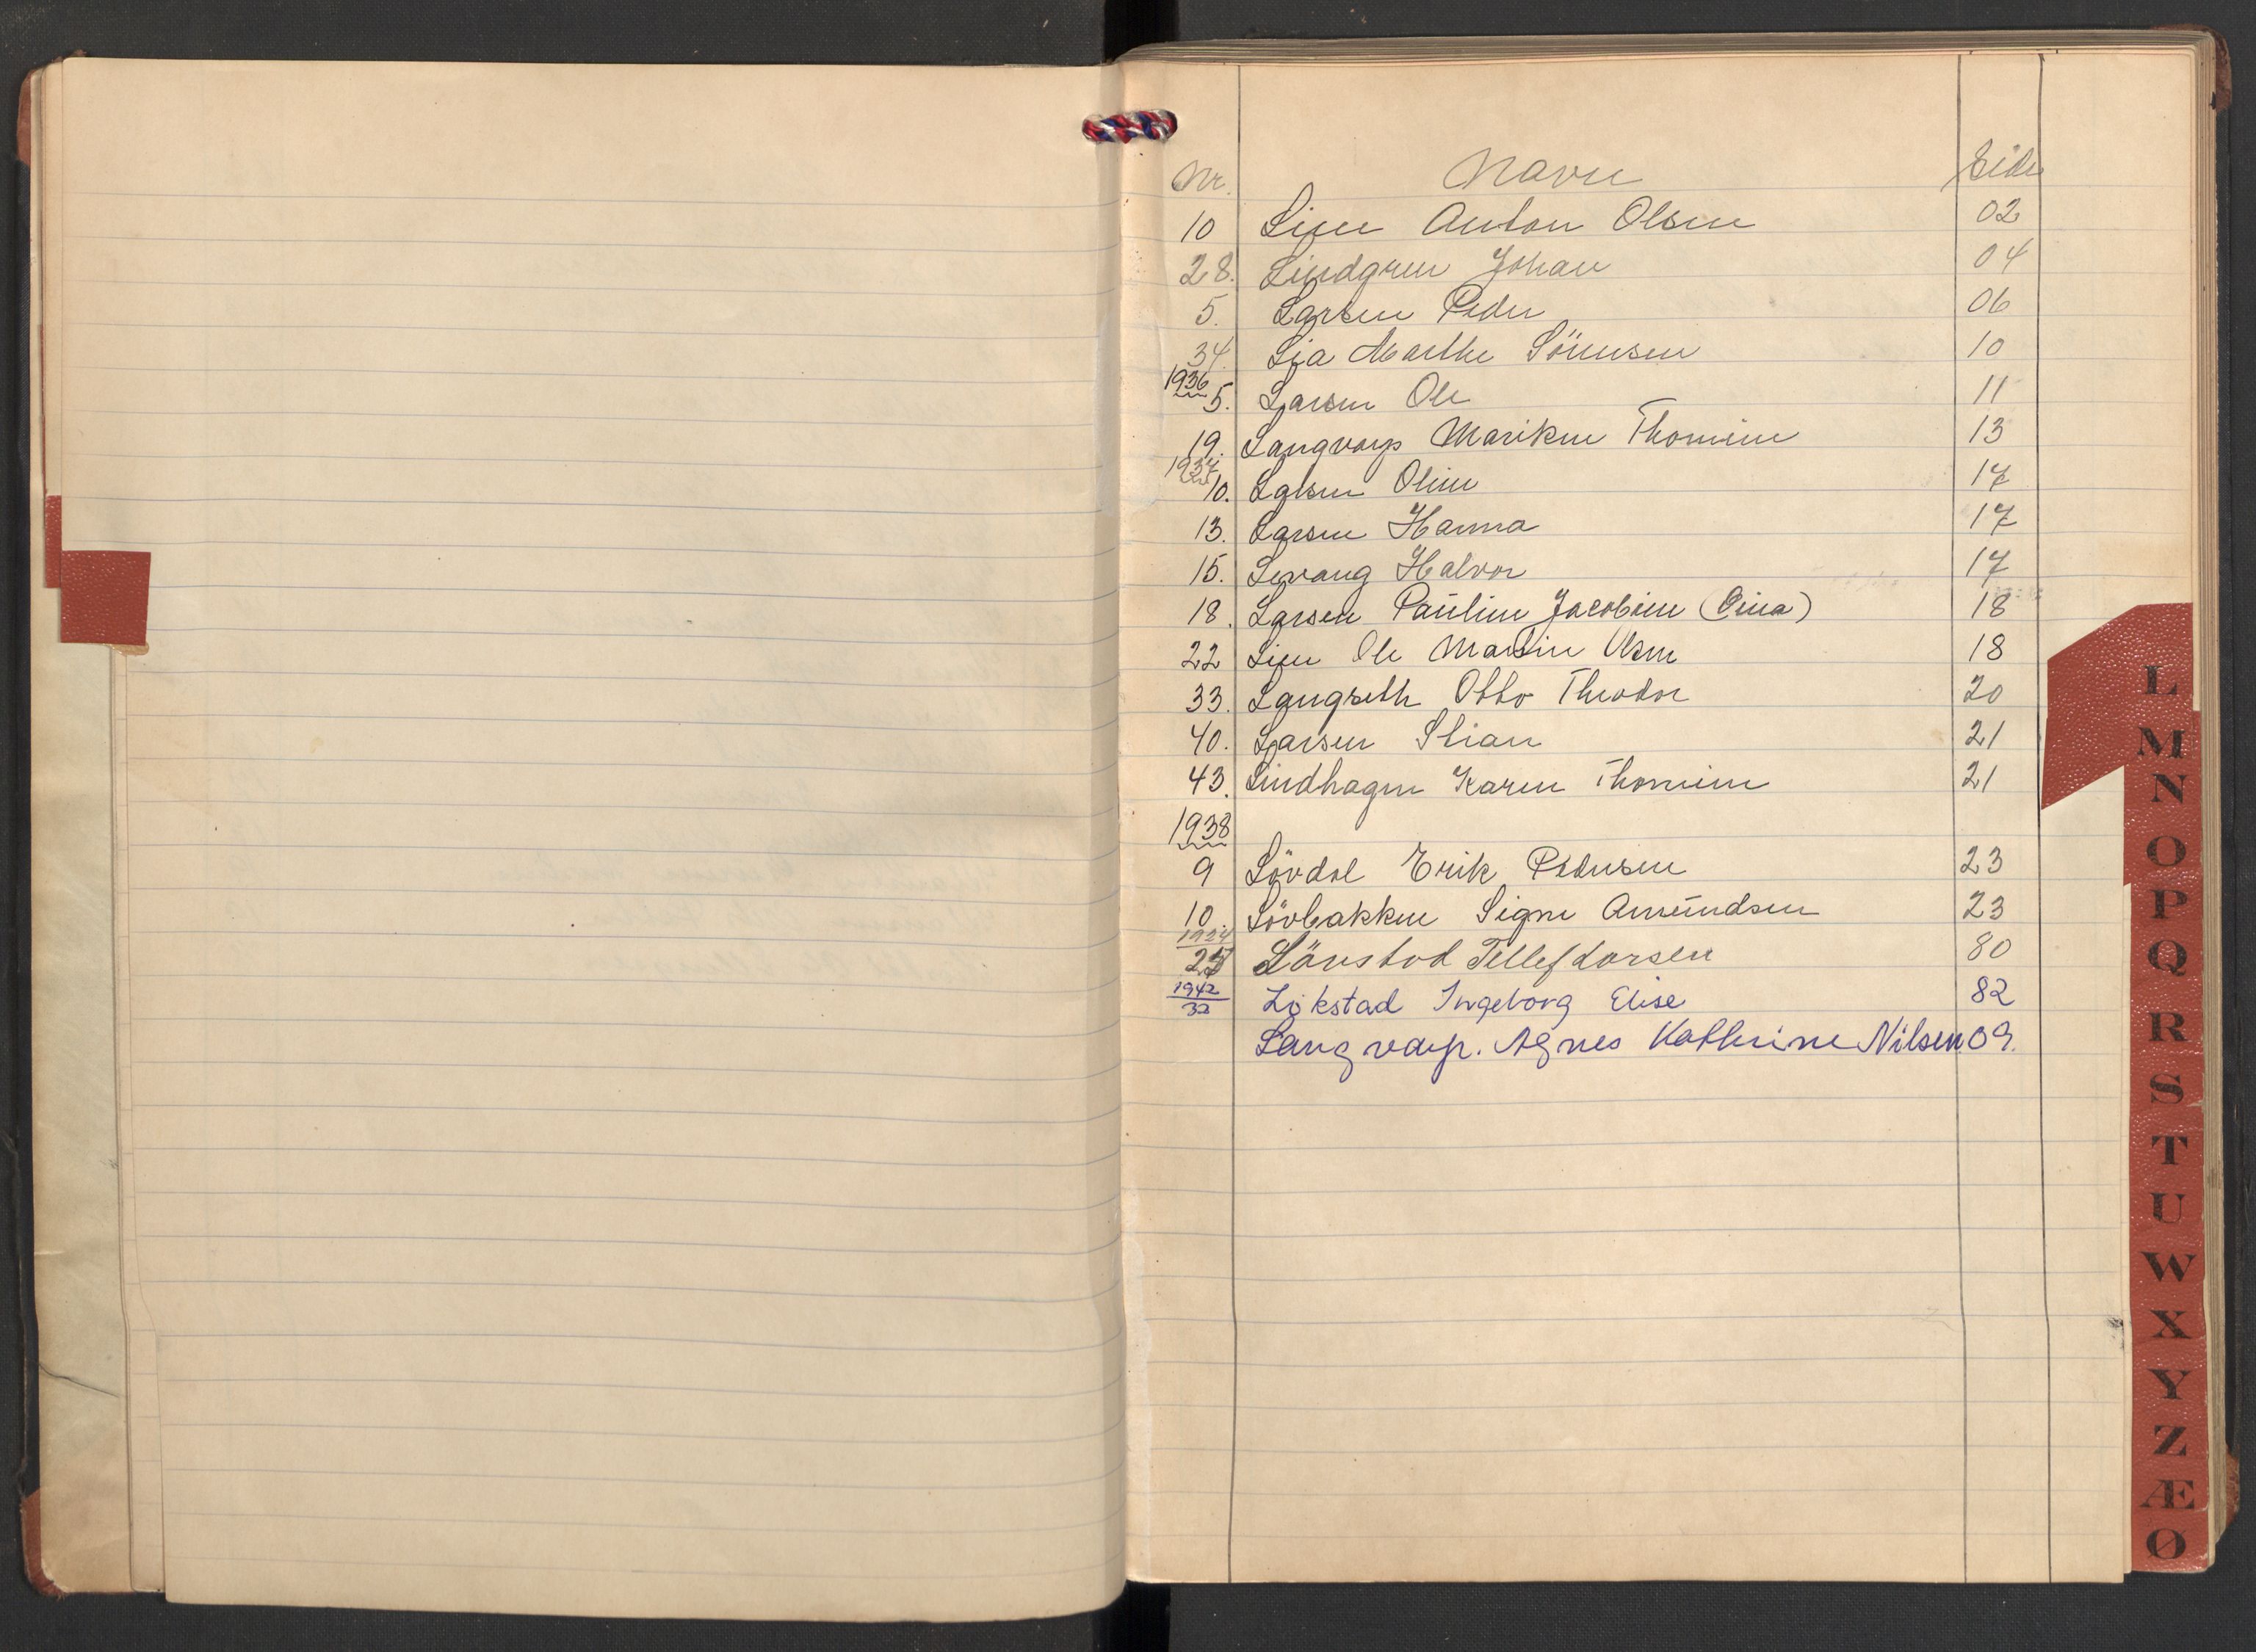 Nr. Navn Side
10 Lien Anton Olsen 02
28. Lindgren Johan 04
5. Larsen Peder 06
34. Lia Marthe Sörensen 10
1936
5. Larsen Ole 11
19. Langvarp Mariken Thomine 13
1937
10. Larsen Oline 17
13. Larsen Hanna 17
15. Levang Halvor 17
18. Larsen Pauline Jacobine (Oina) 18
22 Lien Ole Martin Olsen 18
33. Langseth Otto Theodor 20
40. Larsen Stian 21
43. Lindhagen Karen Thomine 21
1938
9 Lövdal Erik Pedersen 23
10. Lövbakken Signe Amundsen 23
1924
25 Lönstad Tellef Larsen 80
1942
32 Lökstad Ingeborg Elise 82
Langvarp. Agnes Kathrine Nilsen 09.
L
M
N
O
P
Q
R
S
T
U
W
X
Y
Z
Æ
Ø